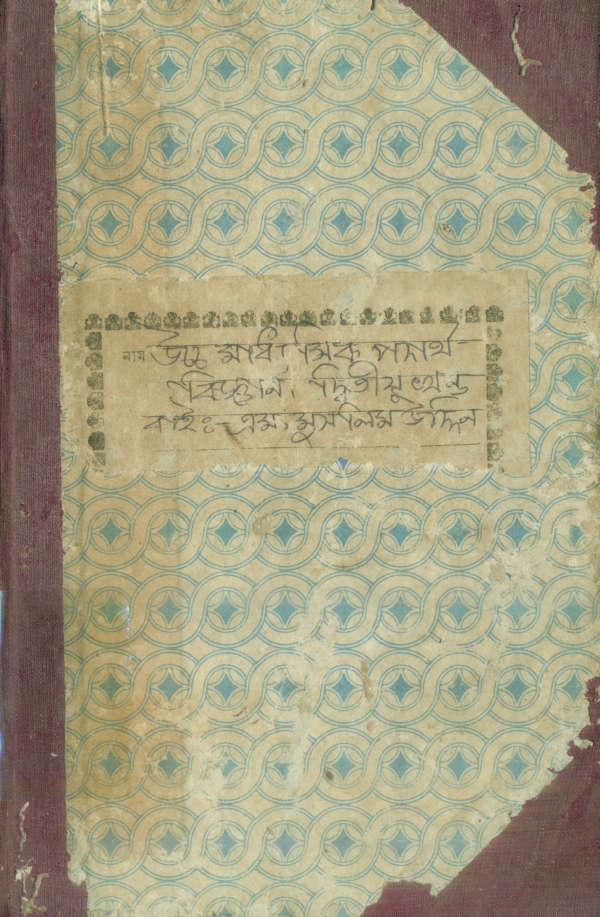 নাম উচ্চ মাধ্যমিক পদার্থ-
বিজ্ঞান, দ্বিতীয় খন্ড
বাইঃ- এম, মুসলিম উদ্দিন